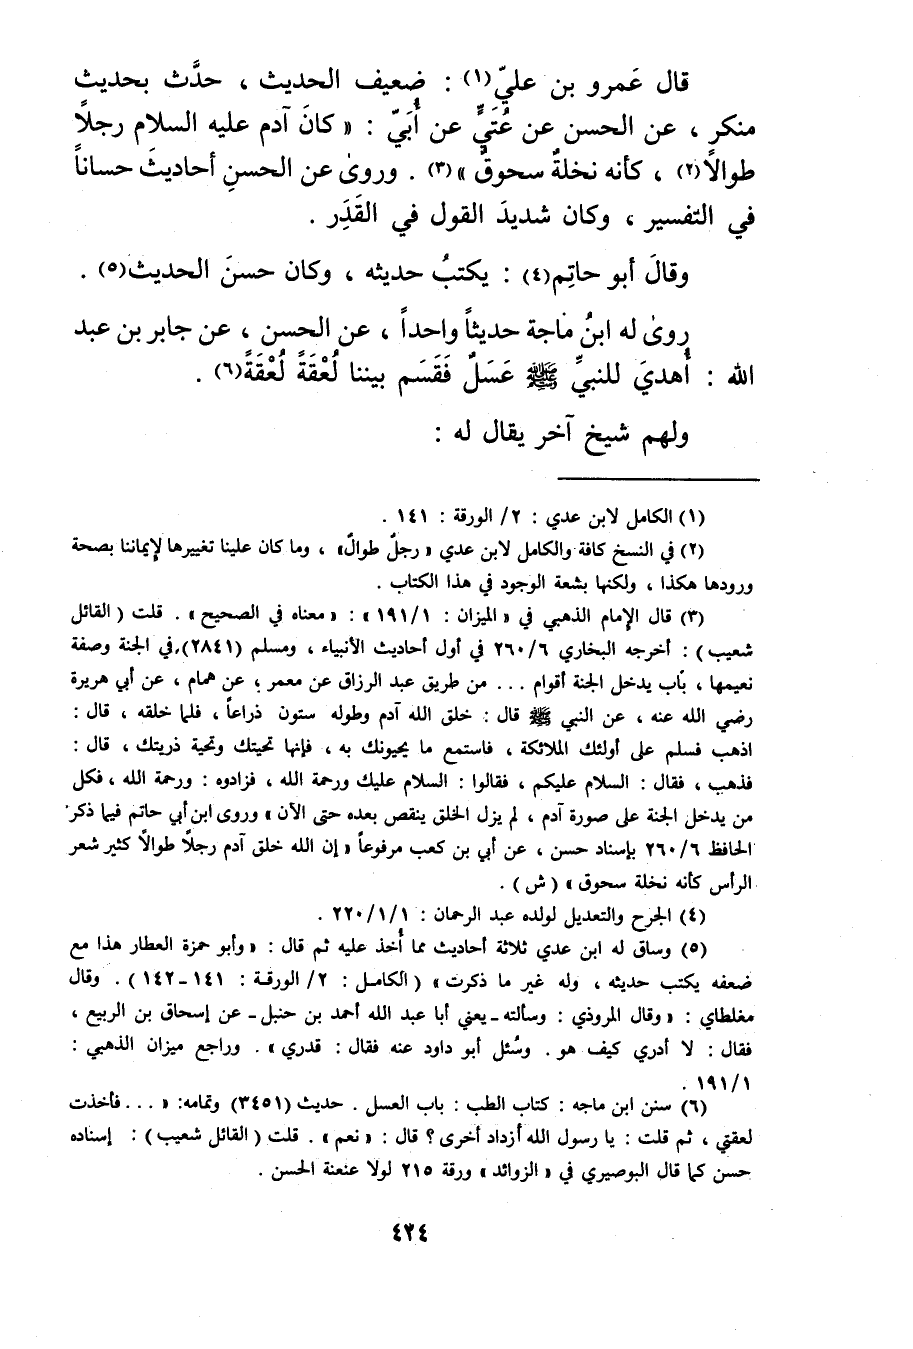 قال عَمرو بن عليّ(١) : ضعيف الحديث ، حدَّث بحديث
منكر ، عن الحسن عن عُتَيٍّ عن أُبَيّ : « كانَ آدم عليه السلام رجلاً
طوالاً(٢) ، كأنه نخلةٌ سحوقٌ »(٣) . وروىٰ عن الحسنِ أحاديثَ حساناً
في التفسير ، وكان شديدَ القول في القَدَرِ .
وقالَ أبو حاتِم(٤) : يكتبُ حديثه ، وكان حسنَ الحديث(٥) .
روىٰ له ابنُ ماجة حديثاً واحداً ، عن الحسن ، عن جابر بن عبد
الله : أُهديَ للنبيِّ ﷺ عَسَلٌ فَقَسَم بيننا لُعْقَةً لُعْقَةً(٦) .
ولهم شيخ آخر يقال له :
(١) الكامل لابن عدي : ٢/ الورقة : ١٤١ .
(٢) في النسخ كافة والكامل لابن عدي « رجلٌ طوالٌ» ، وما كان علينا تغييرها لإيماننا بصحة
ورودها هكذا ، ولكنها بشعة الوجود في هذا الكتاب .
(٣) قال الإمام الذهبي في « الميزان : ١٩١/١ » : « معناه في الصحيح » . قلت ( القائل
شعيب ) : أخرجه البخاري ٢٦٠/٦ في أول أحاديث الأنبياء ، ومسلم (٢٨٤١) في الجنة وصفة
نعيمها ، باب يدخل الجنة أقوام ... من طريق عبد الرزاق عن معمر ، عن همام ، عن أبي هريرة
رضي الله عنه ، عن النبي ﷺ قال : خلق الله آدم وطوله ستون ذراعاً ، فلما خلقه ، قال :
اذهب فسلم على أولئك الملائكة ، فاستمع ما يحيونك به ، فإنها تحيتك وتحية ذريتك ، قال :
فذهب ، فقال : السلام عليكم ، فقالوا : السلام عليك ورحمة الله ، فزادوه : ورحمة الله ، فكل
من يدخل الجنة على صورة آدم ، لم يزل الخلق ينقص بعده حتى الآن » وروى ابن أبي حاتم فيما ذكر
الحافظ ٢٦٠/٦ بإسناد حسن ، عن أبي بن كعب مرفوعاً « إن الله خلق آدم رجلاً طوالاً كثير شعر
الرأس كأنه نخلة سحوق » ( ش ) .
(٤) الجرح والتعديل لولده عبد الرحمان : ٢٢٠/١/١ .
(٥) وساق له ابن عدي ثلاثة أحاديث مما أُخذ عليه ثم قال : « وأبو حمزة العطار هذا مع
ضعفه يكتب حديثه ، وله غير ما ذكرت » ( الكامل : ٢/ الورقة : ١٤١ -١٤٢ ) . وقال
مغلطاي : « وقال المروذي : وسألته - يعني أبا عبد الله أحمد بن حنبل - عن إسحاق بن الربيع ،
فقال : لا أدري كيف هو . وسُئل أبو داود عنه فقال : قدري » . وراجع ميزان الذهبي :
١٩١/١ .
(٦) سنن ابن ماجه : كتاب الطب : باب العسل . حديث (٣٤٥١) وتمامه: « ... فأخذت
لعقتي ، ثم قلت : يا رسول الله أزداد أخرى ؟ قال : « نعم » . قلت ( القائل شعيب ) : إسناده
حسن كما قال البوصيري في « الزوائد » ورقة ٢١٥ لولا عنعنة الحسن .
٤٢٤